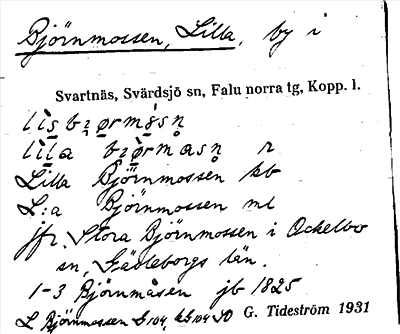 Björnmossen, Lilla, by i
Svartnäs, Svärdsjö sn, Falu norra tg, Kopp. l.
lìs̱bi̯ørmɔ́sn̥
lìla bi̯òrmasn̥ r
Lilla Björnmossen kb
L:a Björnmossen ml
jfr. Stora Björnmossen i Ockelbo
sn, Gävleborgs län.
1-3 Björnmåsen jb 1825
L Björnmossen G. Tideström 1931